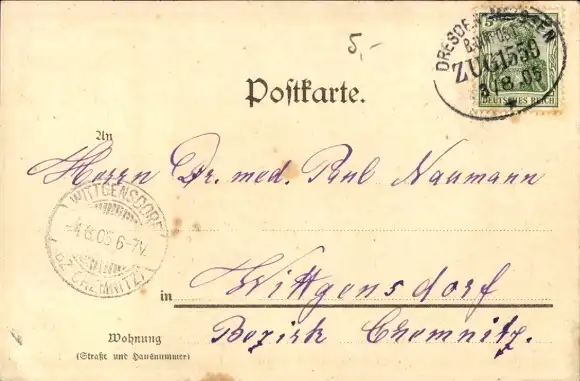 5,-
5
DRESDEN-MEISZEN
BAHNPOST
ZUG 1559
3/8.05
DEUTSCHES REICH
Postkarte.
An
Herrn Dr. med. Paul Naumann
WITTGENSDORF
-4.8.05 6-7V.
BZ. CHEMNITZ
in Wittgensdorf
Bezirk Chemnitz.
Wohnung
(Straße und Hausnummer)